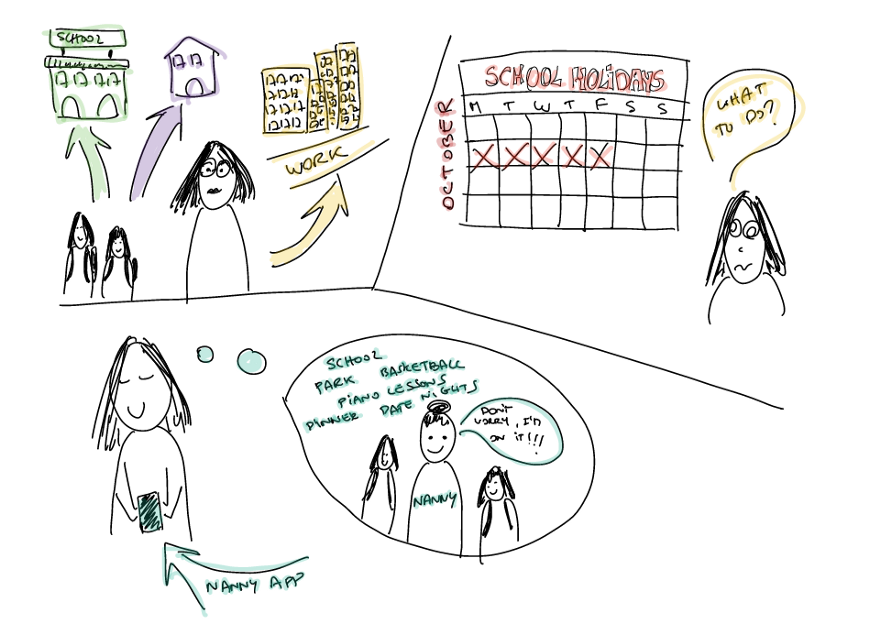 SCHOOL
WORK
SCHOOL HOLIDAYS
M T W T F S S
OCTOBER
WHAT
TO DO?
SCHOOL
PARK BASKETBALL
PIANO LESSONS
DINNER DATE NIGHTS
DON'T
WORRY, I'M
ON IT!!!
NANNY
NANNY APP